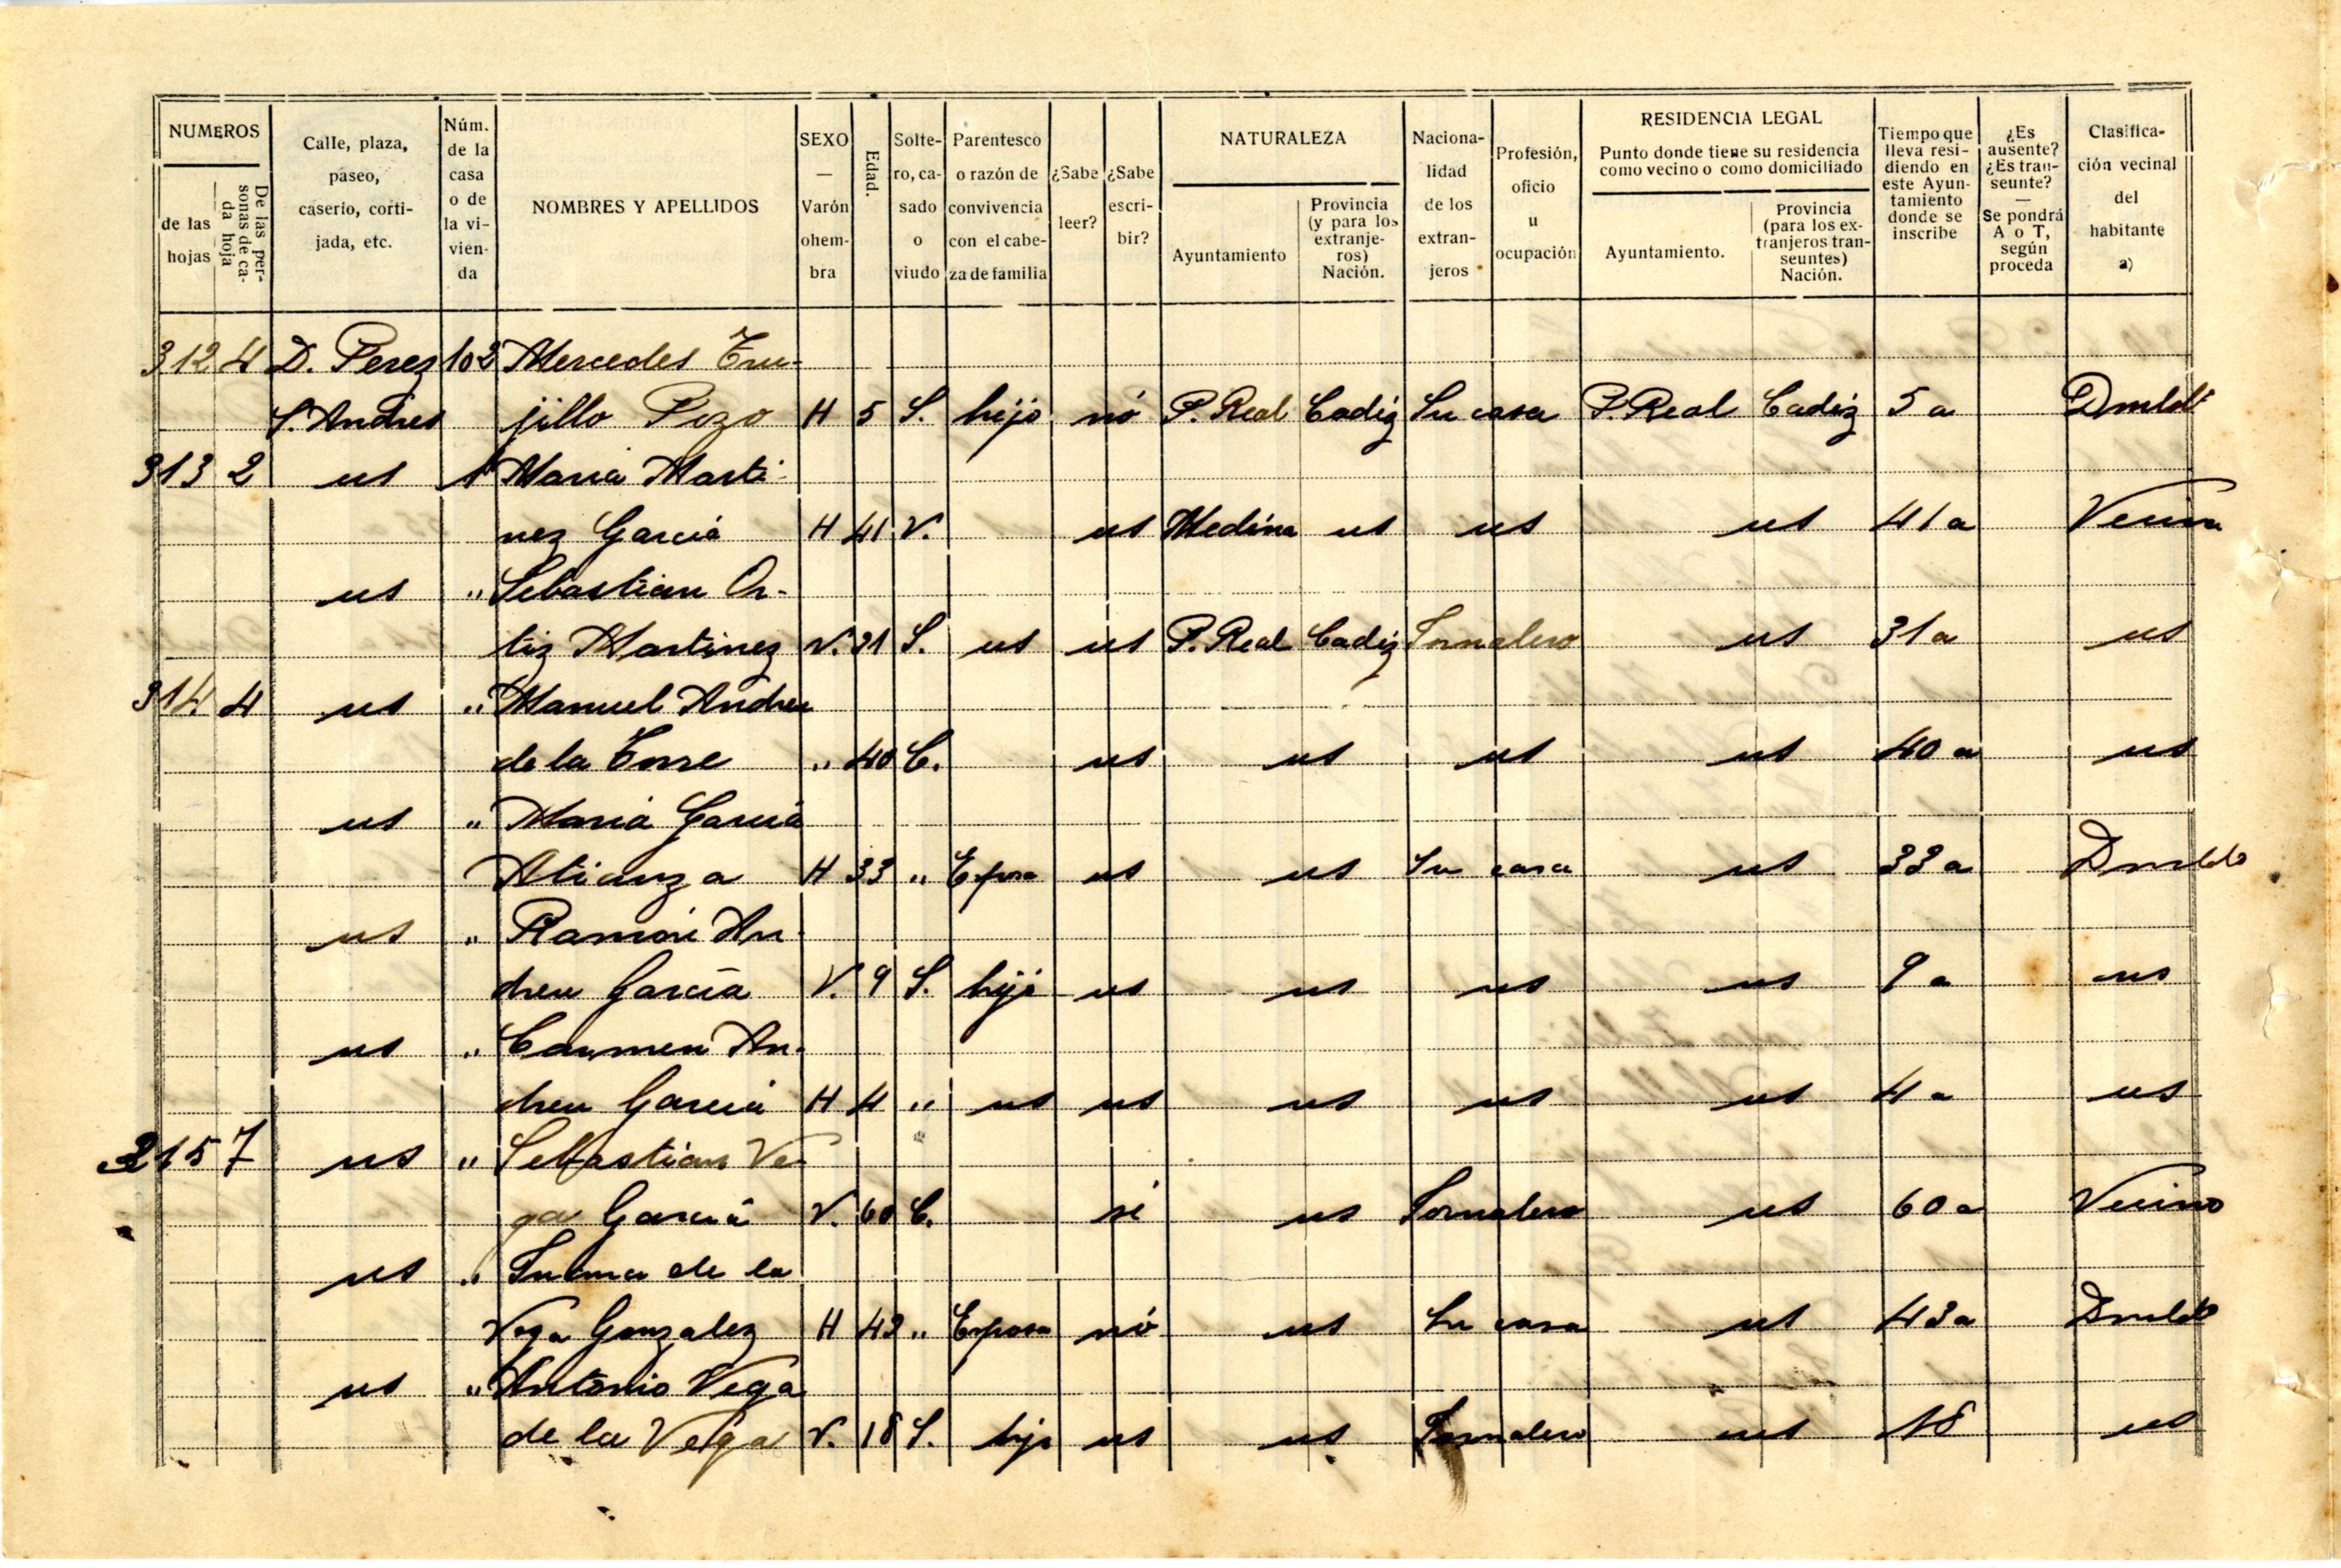 NUMEROS
de las hojas
De las personas de cada hoja
Calle, plaza, paseo, caserio, cortijada, etc.
Núm. de la casa o de la vivienda
NOMBRES Y APELLIDOS
SEXO — Varón o hembra
Edad.
Soltero, casado o viudo
Parentesco o razón de convivencia con el cabeza de familia
¿Sabe leer?
¿Sabe escribir?
NATURALEZA
Ayuntamiento
Provincia (y para los extranjeros) Nación.
Nacionalidad de los extranjeros
Profesión, oficio u ocupación
RESIDENCIA LEGAL
Punto donde tiene su residencia como vecino o como domiciliado
Ayuntamiento.
Provincia (para los extranjeros transeuntes) Nación.
Tiempo que lleva residiendo en este Ayuntamiento donde se inscribe
¿Es ausente? ¿Es transeunte? — Se pondrá A o T, según proceda
Clasificación vecinal del habitante a)
312 4 D. Perez 102 Mercedes Tru-
S. Andres jillo Pozo H 5 S. hijo nó P. Real Cadiz Su casa P. Real Cadiz 5 a Dmldo
313 2 us 1 Maria Marti-
nez Garcia H 41 V. us Medina us us us 41 a Vecina
us " Sebastian Or-
tiz Martinez V. 31 S. us us P. Real Cadiz Jornalero us 31 a us
314 4 us " Manuel Andreu
de la Torre " 40 C. us us us us 40 a us
us " Maria Garcia
Atianza H 33 " Esposa us us Su casa us 33 a Dmldo
us " Ramón An-
dreu Garcia V. 9 S. hijo us us us us 9 a us
us " Carmen An-
dreu Garcia H 4 " us us us us us 4 a us
315 7 us " Sebastian Ve-
ga Garcia V. 60 C. si us Jornalero us 60 a Vecino
us " de la
Vega Gonzalez H 43 " Esposa nó us Su casa us 43 a Dmldo
us " Antonio Vega
de la Vega V. 18 S. hijo us us Jornalero us 18 us